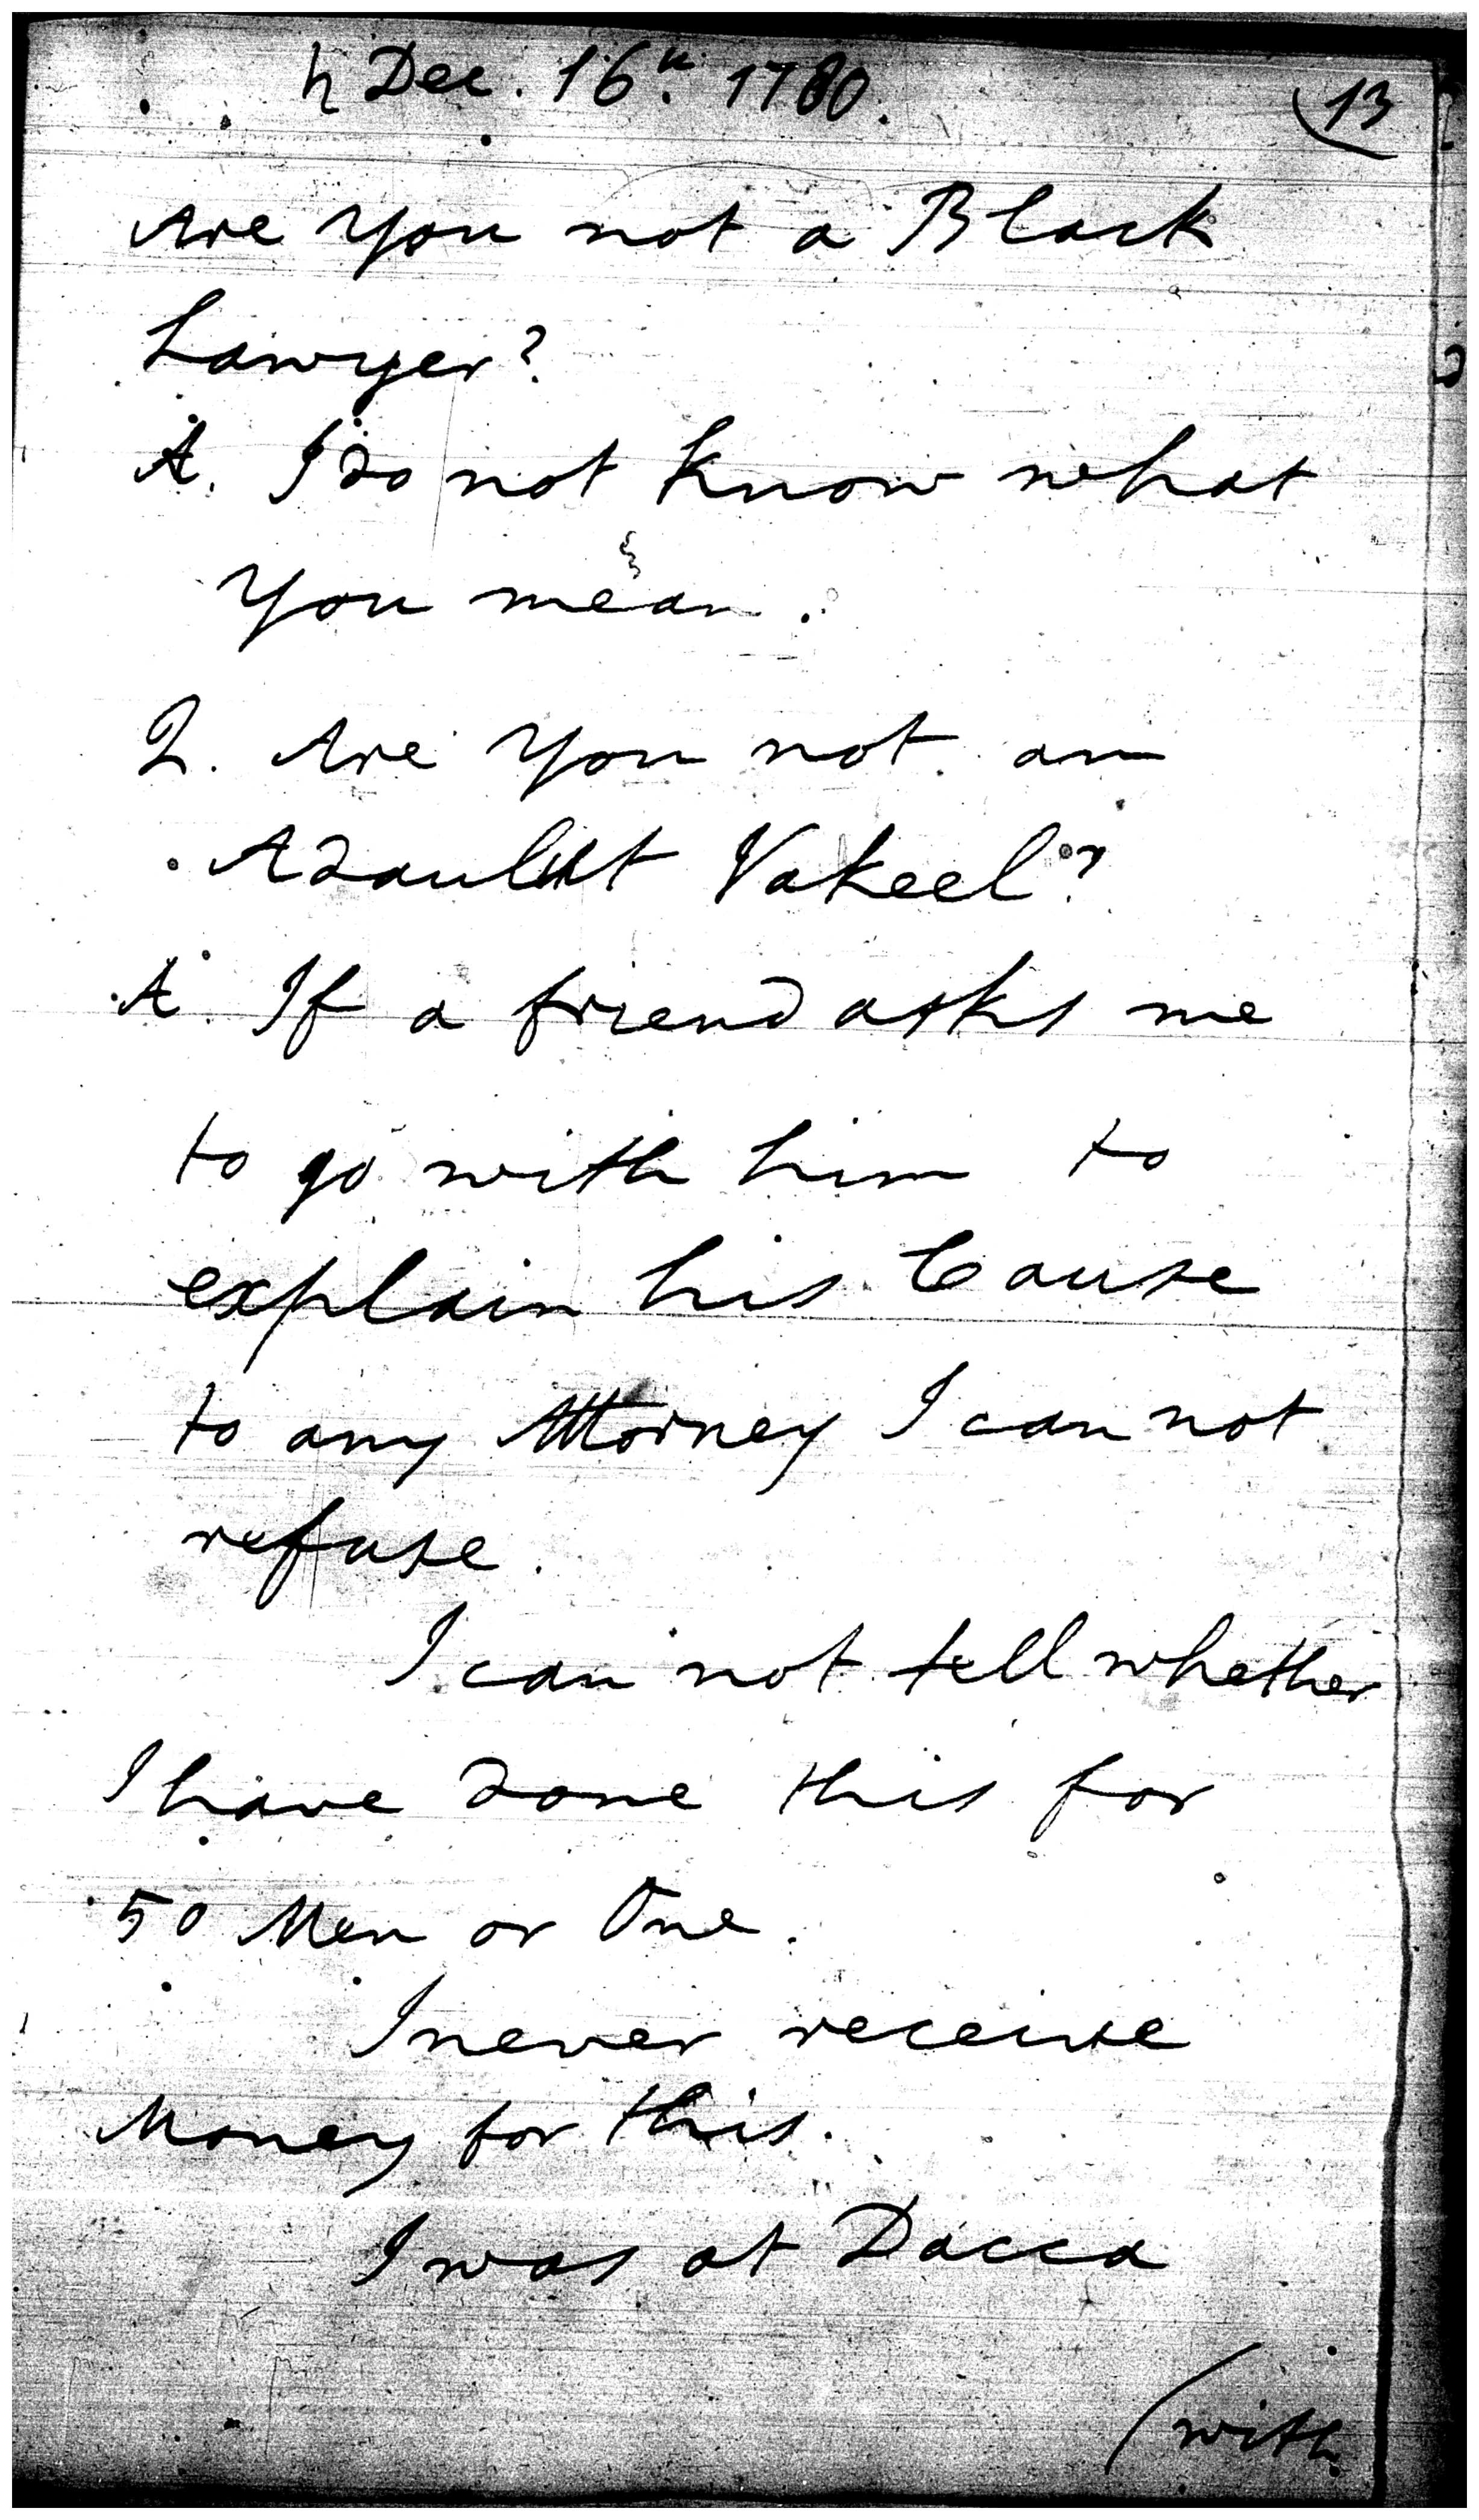 ♄ Dec. 16th. 1780.
(13
Are You not a Black
Lawyer?
A. I do not know what
You mean.
Q. Are You not an
Adaulut Vakeel?
A. If a friend asks me
to go with him to
explain his Cause
to any Attorney I can not
refuse.
I can not tell whether
I have done this for
50 Men or One.
I never receive
Money for this.
I was at Dacca
(with